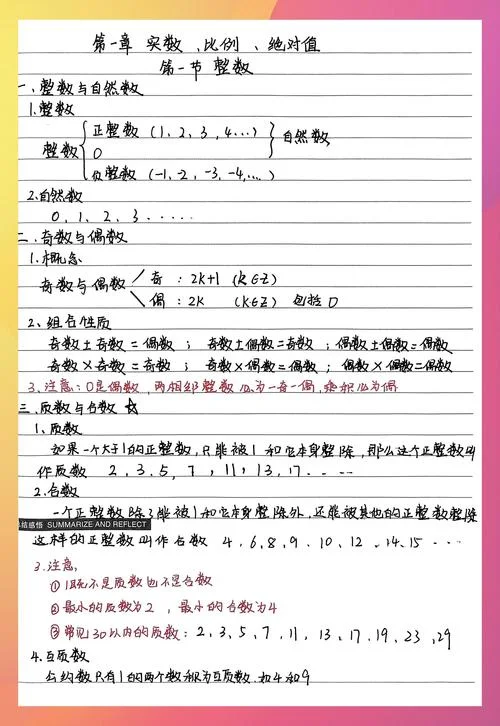 第一章 实数、比例、绝对值
第一节 整数
一、整数与自然数
1.整数
整数 { 正整数 (1, 2, 3, 4...) } 自然数
0
负整数 (-1, -2, -3, -4,...)
2.自然数
0, 1, 2, 3......
二、奇数与偶数
1.概念
奇数与偶数 奇:2K+1 (K∈Z)
偶:2K (K∈Z) 包括0
2、组合性质
奇数±奇数=偶数; 奇数±偶数=奇数; 偶数±偶数=偶数
奇数×奇数=奇数; 奇数×偶数=偶数; 偶数×偶数=偶数
3.注意:0是偶数,两相邻整数必为一奇一偶,乘积必为偶
三、质数与合数 ☆
1、质数
如果一个大于1的正整数,只能被1和它本身整除,那么这个正整数叫
作质数 2, 3, 5, 7, 11, 13, 17.....
2.合数
一个正整数除了能被1和它本身整除外,还能被其他的正整数整除
总结感悟 SUMMARIZE AND REFLECT
这样的正整数叫作合数 4, 6, 8, 9, 10, 12, 14, 15 ...
3.注意,
①1既不是质数也不是合数
②最小的质数为2,最小的合数为4
③常见30以内的质数:2, 3, 5, 7, 11, 13, 17, 19, 23, 29
4.互质数
公约数只有1的两个数称为互质数.如4和9